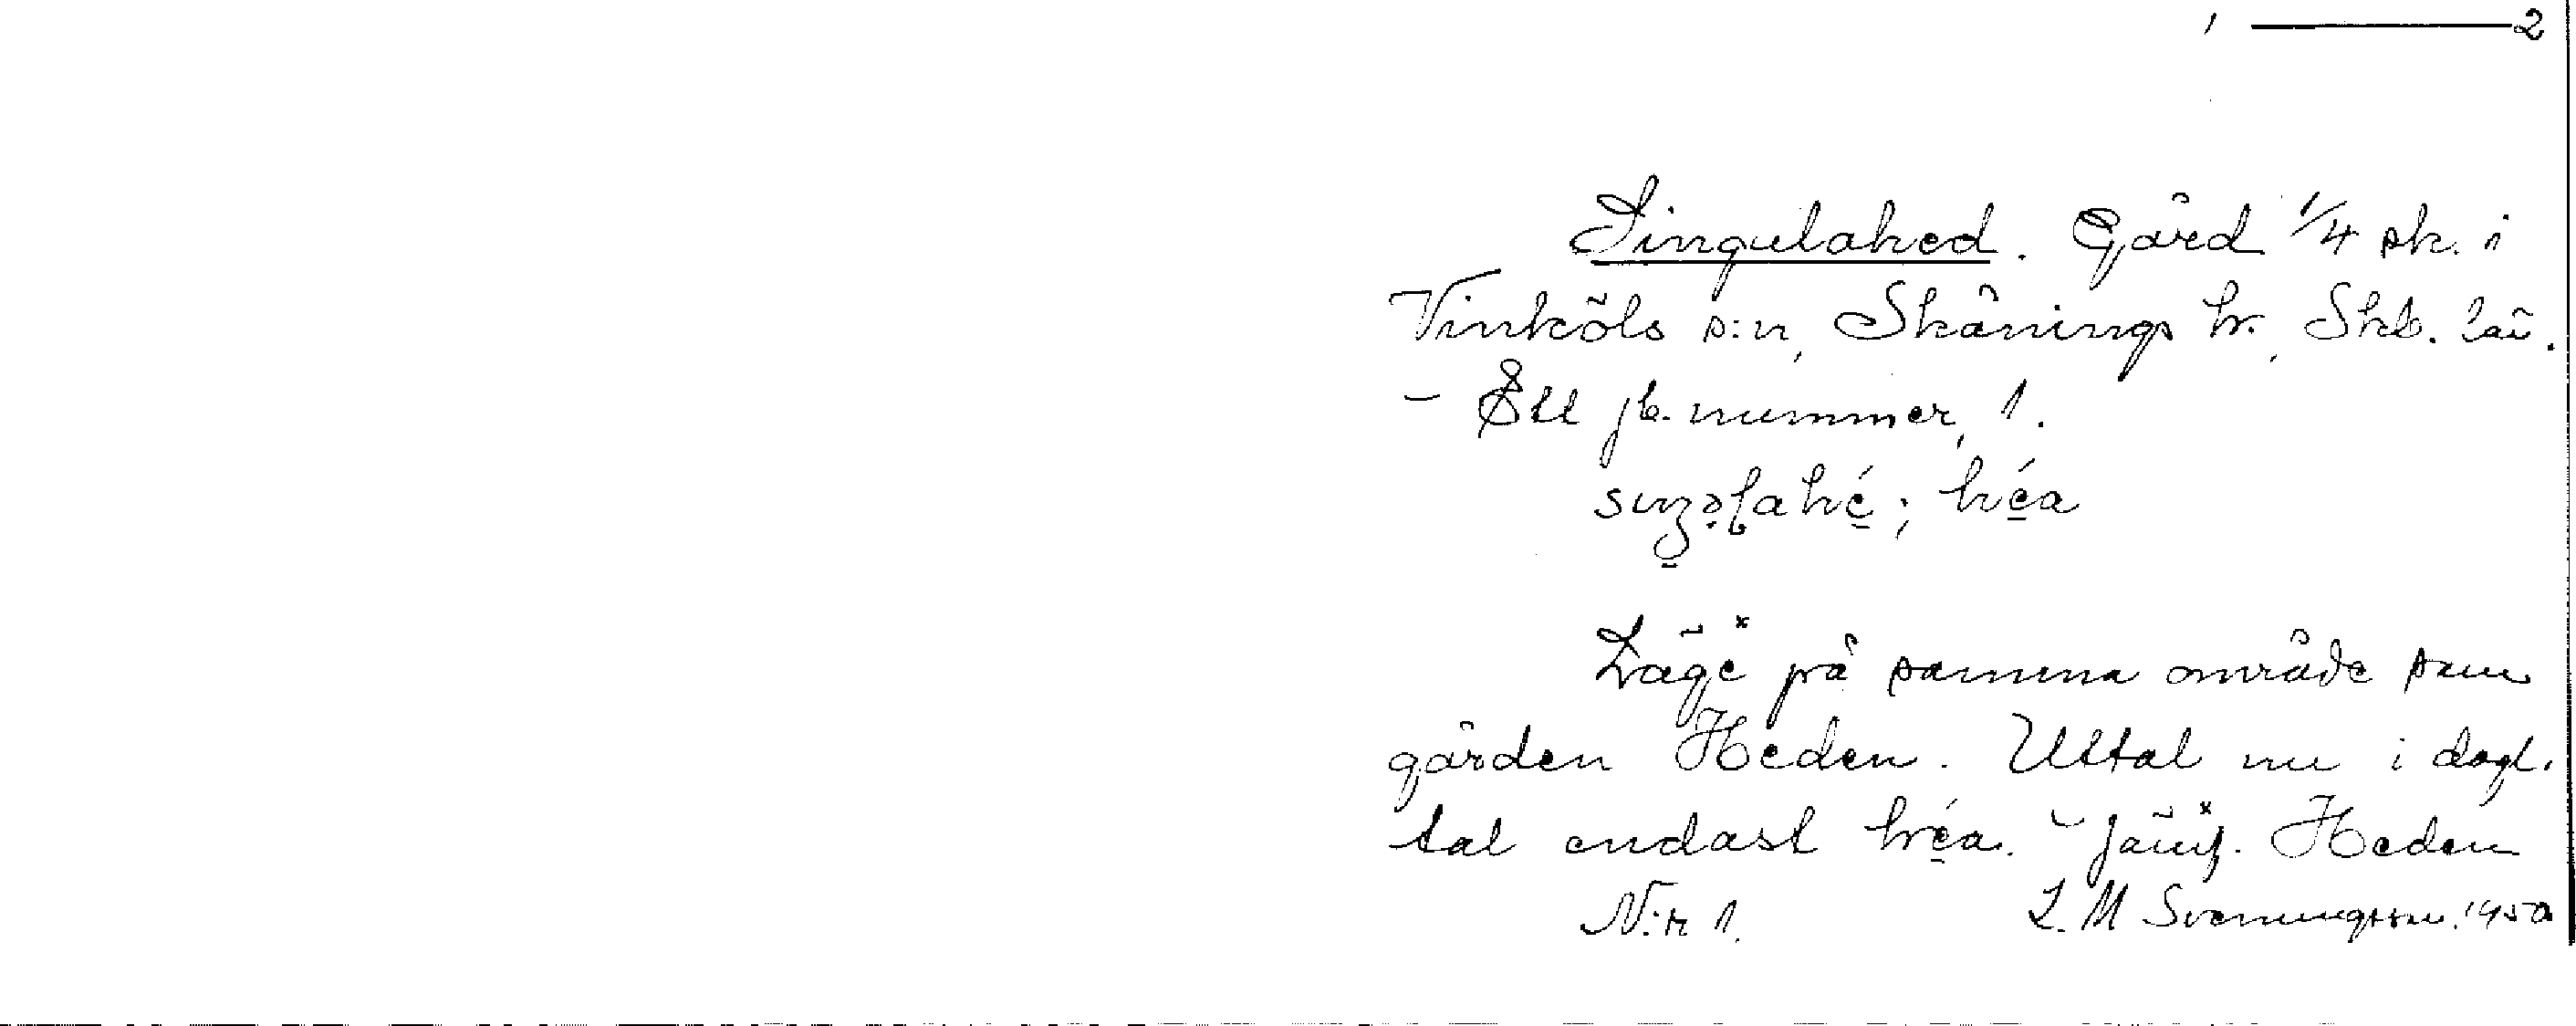 1 ——— 2
Singulahed. Gård 1/4 sk. i
Vinköls s:n, Skånings hr., Skb. län.
- Ett jb. nummer, 1.
hé̱; hé̱a
Läge på samma område som
gården Heden. Uttal nu i dagl.
tal endast hé̱a. - Jämf. Heden
N:r 1. L. M Svenungsson. 1950